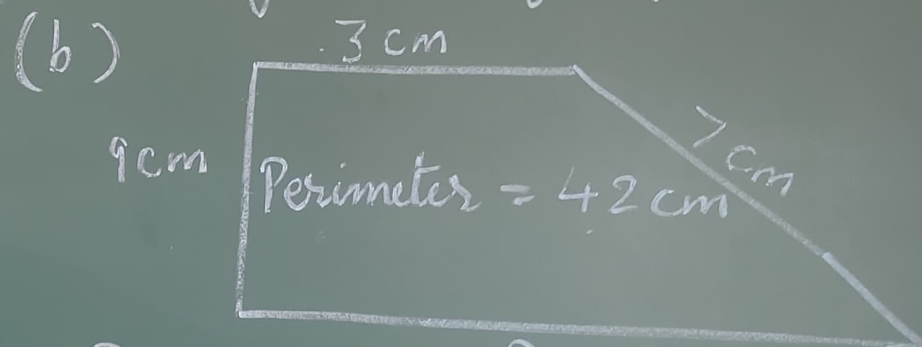 (b)
3 cm
9cm
7 cm
Perimeter = 42 cm